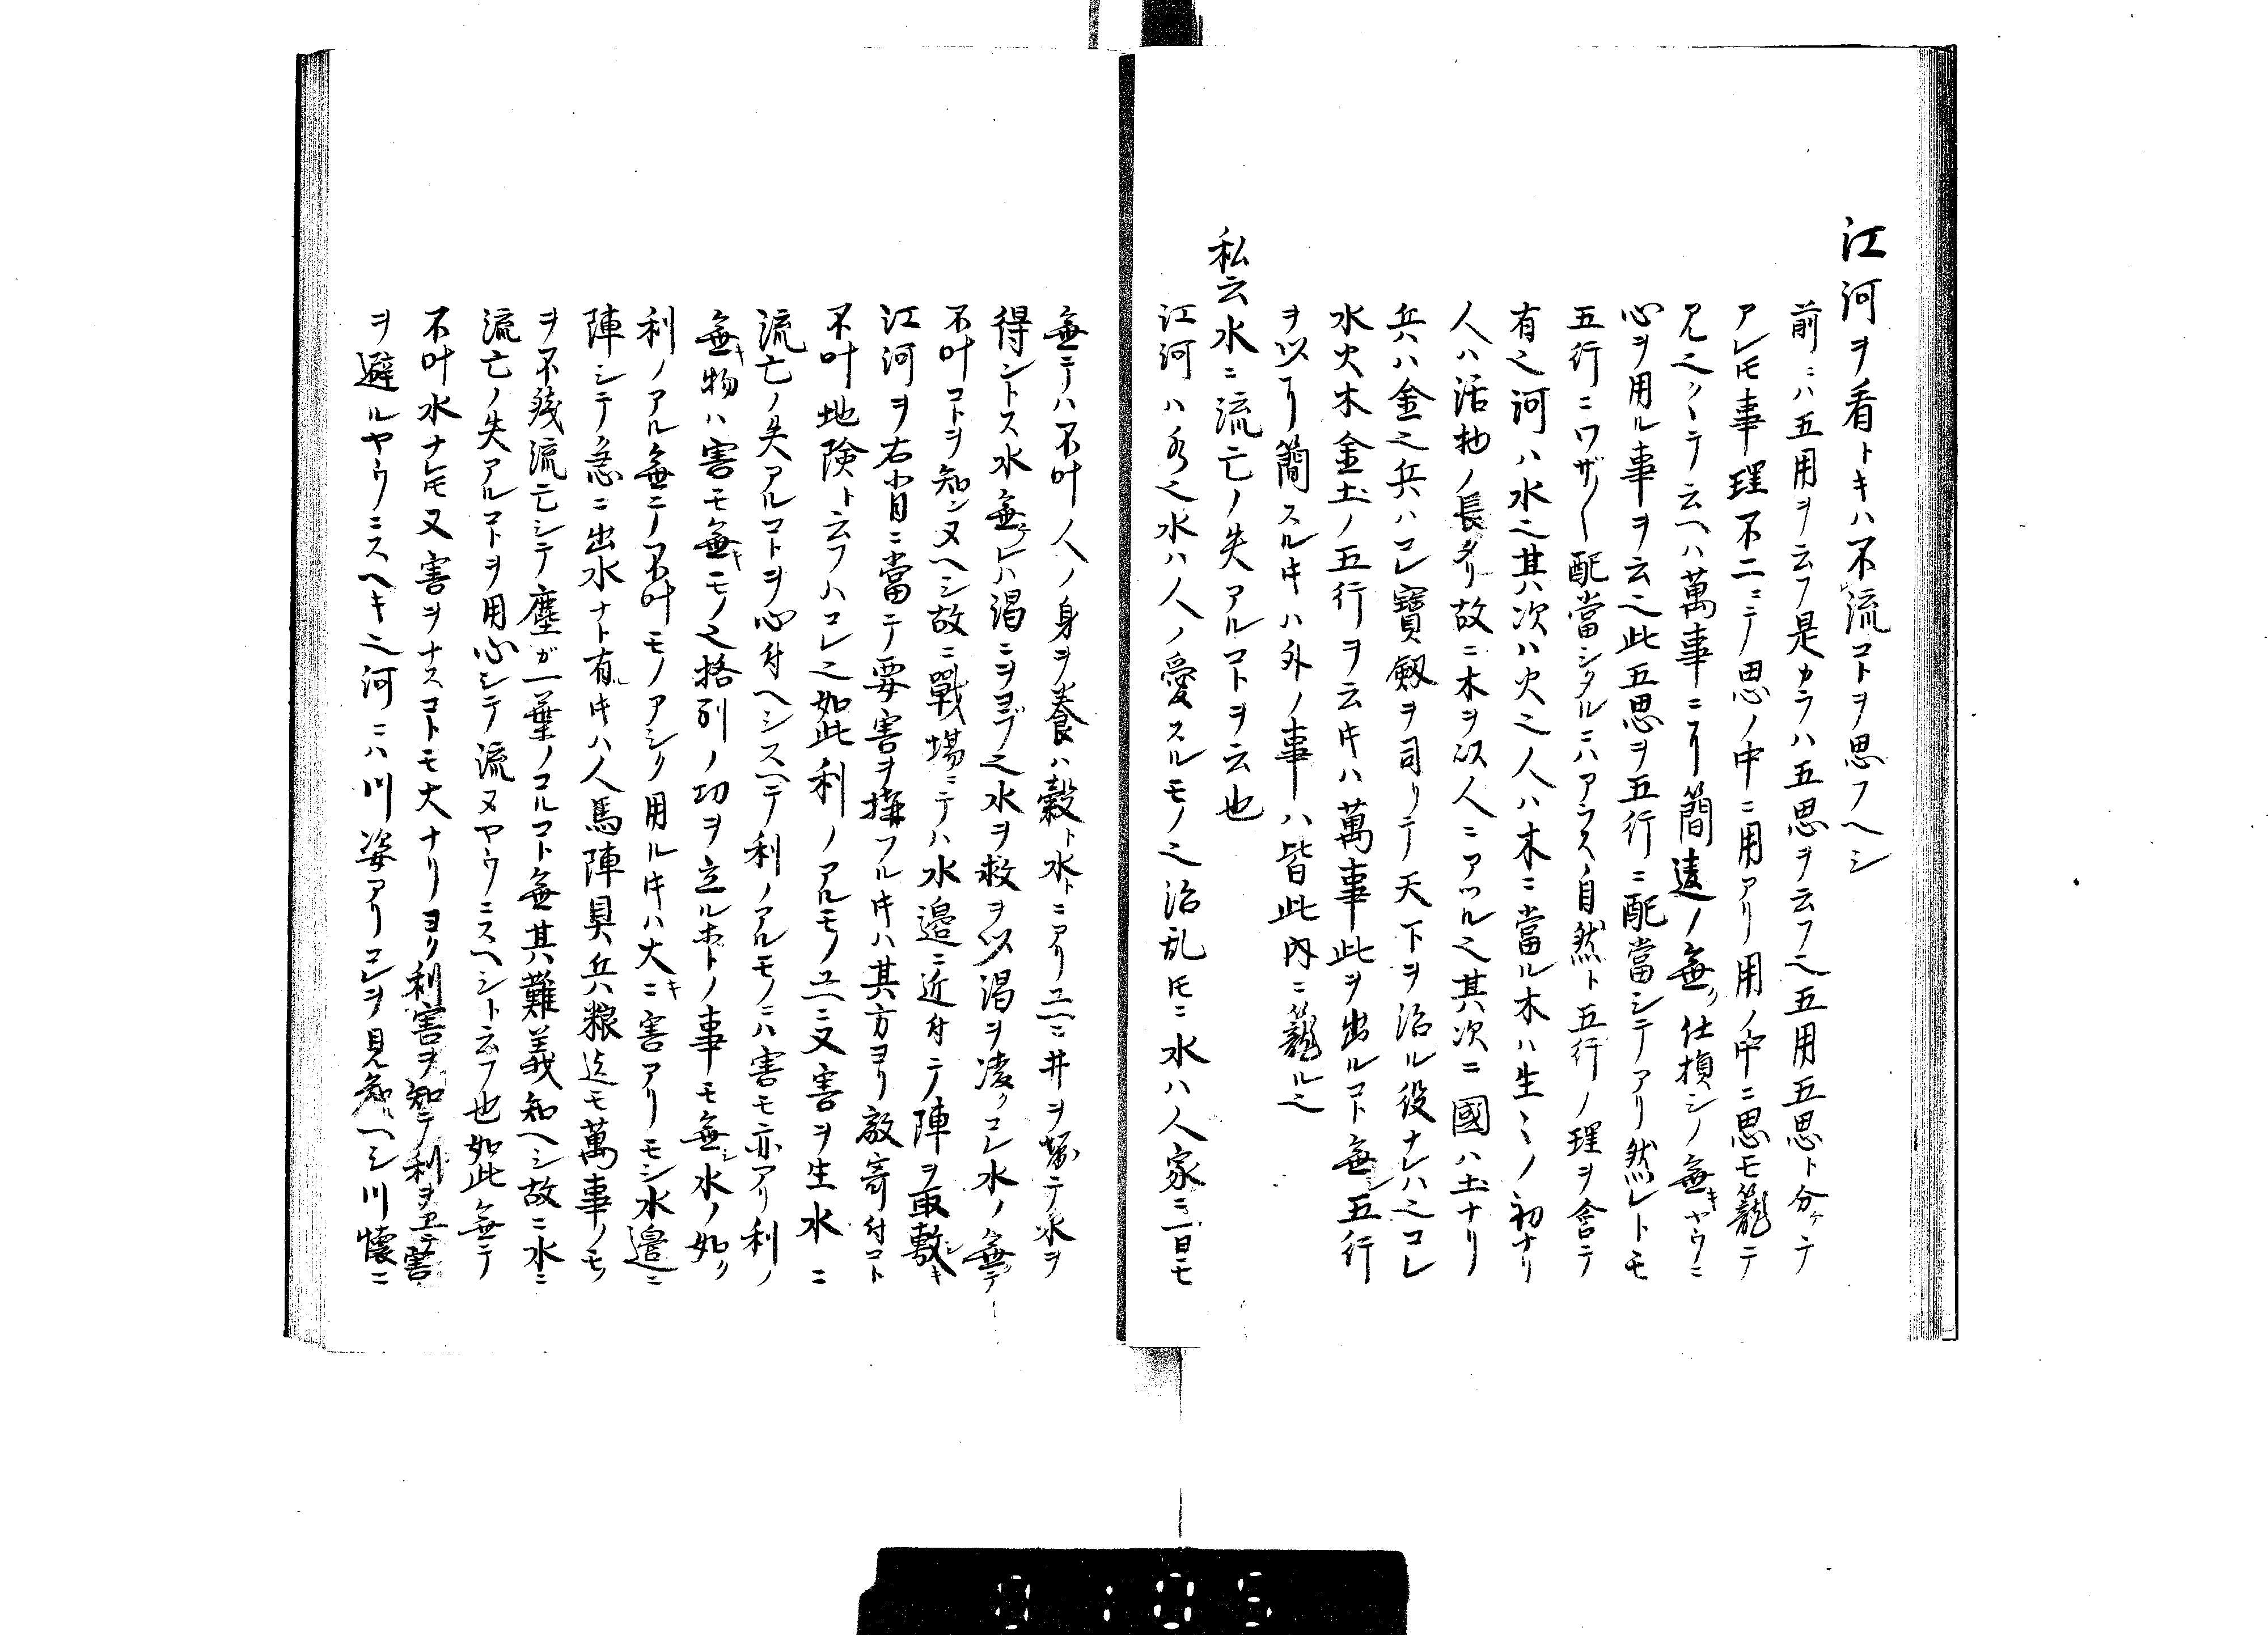 江河ヲ看トキハ不流コトヲ思フヘシ
前ニハ五用ヲ云フ是カラハ五思ヲ云フ之五用五思ト分ケテ
アレ𪜈事理不二ニテ思ノ中ニ用アリ用ノ中ニ思モ籠テ
之クテ云ヘハ萬事ニヿ簡違ノ無ク仕損シノ無キヤウニ
心ヲ用ル事ヲ云之此五思ヲ五行ニ配當シテアリ然レトモ
五行ニワザ〱配當シタルニハアラス自然ト五行ノ理ヲ含テ
有之河ハ水之其次ハ火之人ハ木ニ當ル木ハ生〻ノ初ナリ
人ハ活物ノ長タリ故ニ木ヲ以人ニアツル之其次ニ國ハ土ナリ
兵ハ金之兵ハコレ寶劔ヲ司リテ天下ヲ治ル役ナレハ之コレ
水火木金土ノ五行ヲ云キハ萬事此ヲ出ルコト無シ五行
ヲ以ヿ簡スルキハ外ノ事ハ皆此内ニ籠ル之
私云水ニ流亡ノ失アルコトヲ云也
江河ハ水之水ハ人ノ愛スルモノ之治乱𪜈ニ水ハ人家ニ一日モ
無テハ不叶人ノ身ヲ養ハ穀ト水トニアリユヘニ井ヲ堀テ水ヲ
得ントス水無ケレハ渇ニヲヨブ之水ヲ救ヲ以渇ヲ凌クコレ水ノ無テ
不叶コトヲ知ンヌヘシ故ニ戰場ニテハ水邉ニ近付テ陣ヲ取敷キ
江河ヲ右背ニ當テ要害ヲ擁フルキハ其方ヨリ敵寄付コト
不叶地険ト云フハコレ之如此利ノアルモノユヘニ又害ヲ生水ニ
流亡ノ失アルコトヲ心付ヘシスヘテ利ノアルモノニハ害モ亦アリ利ノ
無キ物ハ害モ無キモノ之格別ノ功ヲ立ルホトノ事モ無シ水ノ如ク
利ノアル無テ不叶モノアシク用ルキハ大キニ害アリモシ水邉ニ
陣シテ急ニ出水ナト有ルキハ人馬陣具兵粮迄モ萬事ノモノ
ヲ不残流亡シテ塵ガ一葉ノコルコト無其難義知ヘシ故ニ水ニ
流亡ノ失アルコトヲ用心シテ流ヌヤウニスヘシト云フ也如此無テ
不叶水ナレ𪜈又害ヲナスコトモ大ナリヨク利害ヲ知テ利ヲ立テ害
ヲ避ルヤウニスヘキ之河ニハ川姿アリコレヲ見知ヘシ川懐ニ